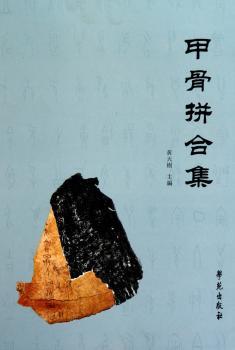 甲骨拼合集
黄天树 主编
学苑出版社